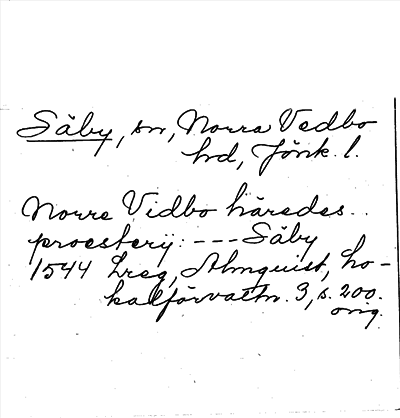 Säby, sn, Norra Vedbo
hd, Jönk. l.
Norre Vidbo häredes..
proesterij: --- Säby
1544 Lreg, Almquist, Lo-
kalförvaltn. 3, s. 200.
orig.